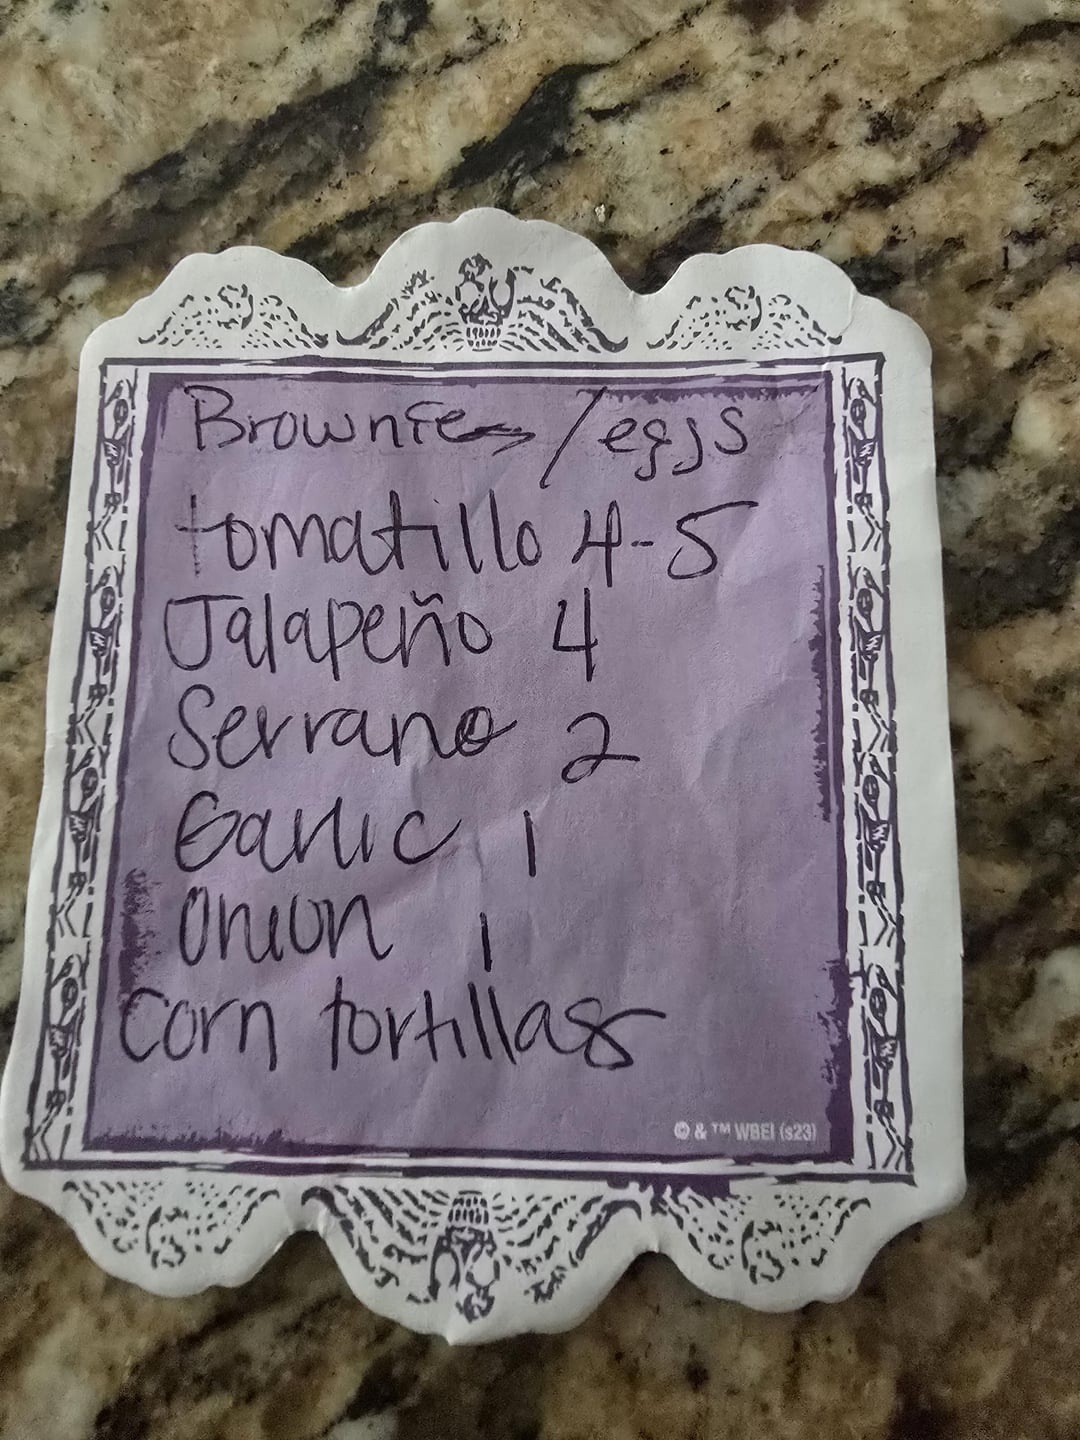 Brownies /eggs
tomatillo 4-5
Jalapeño 4
Serrano 2
Garlic 1
Onion 1
Corn tortillas
© & ™ WBEI (s23)